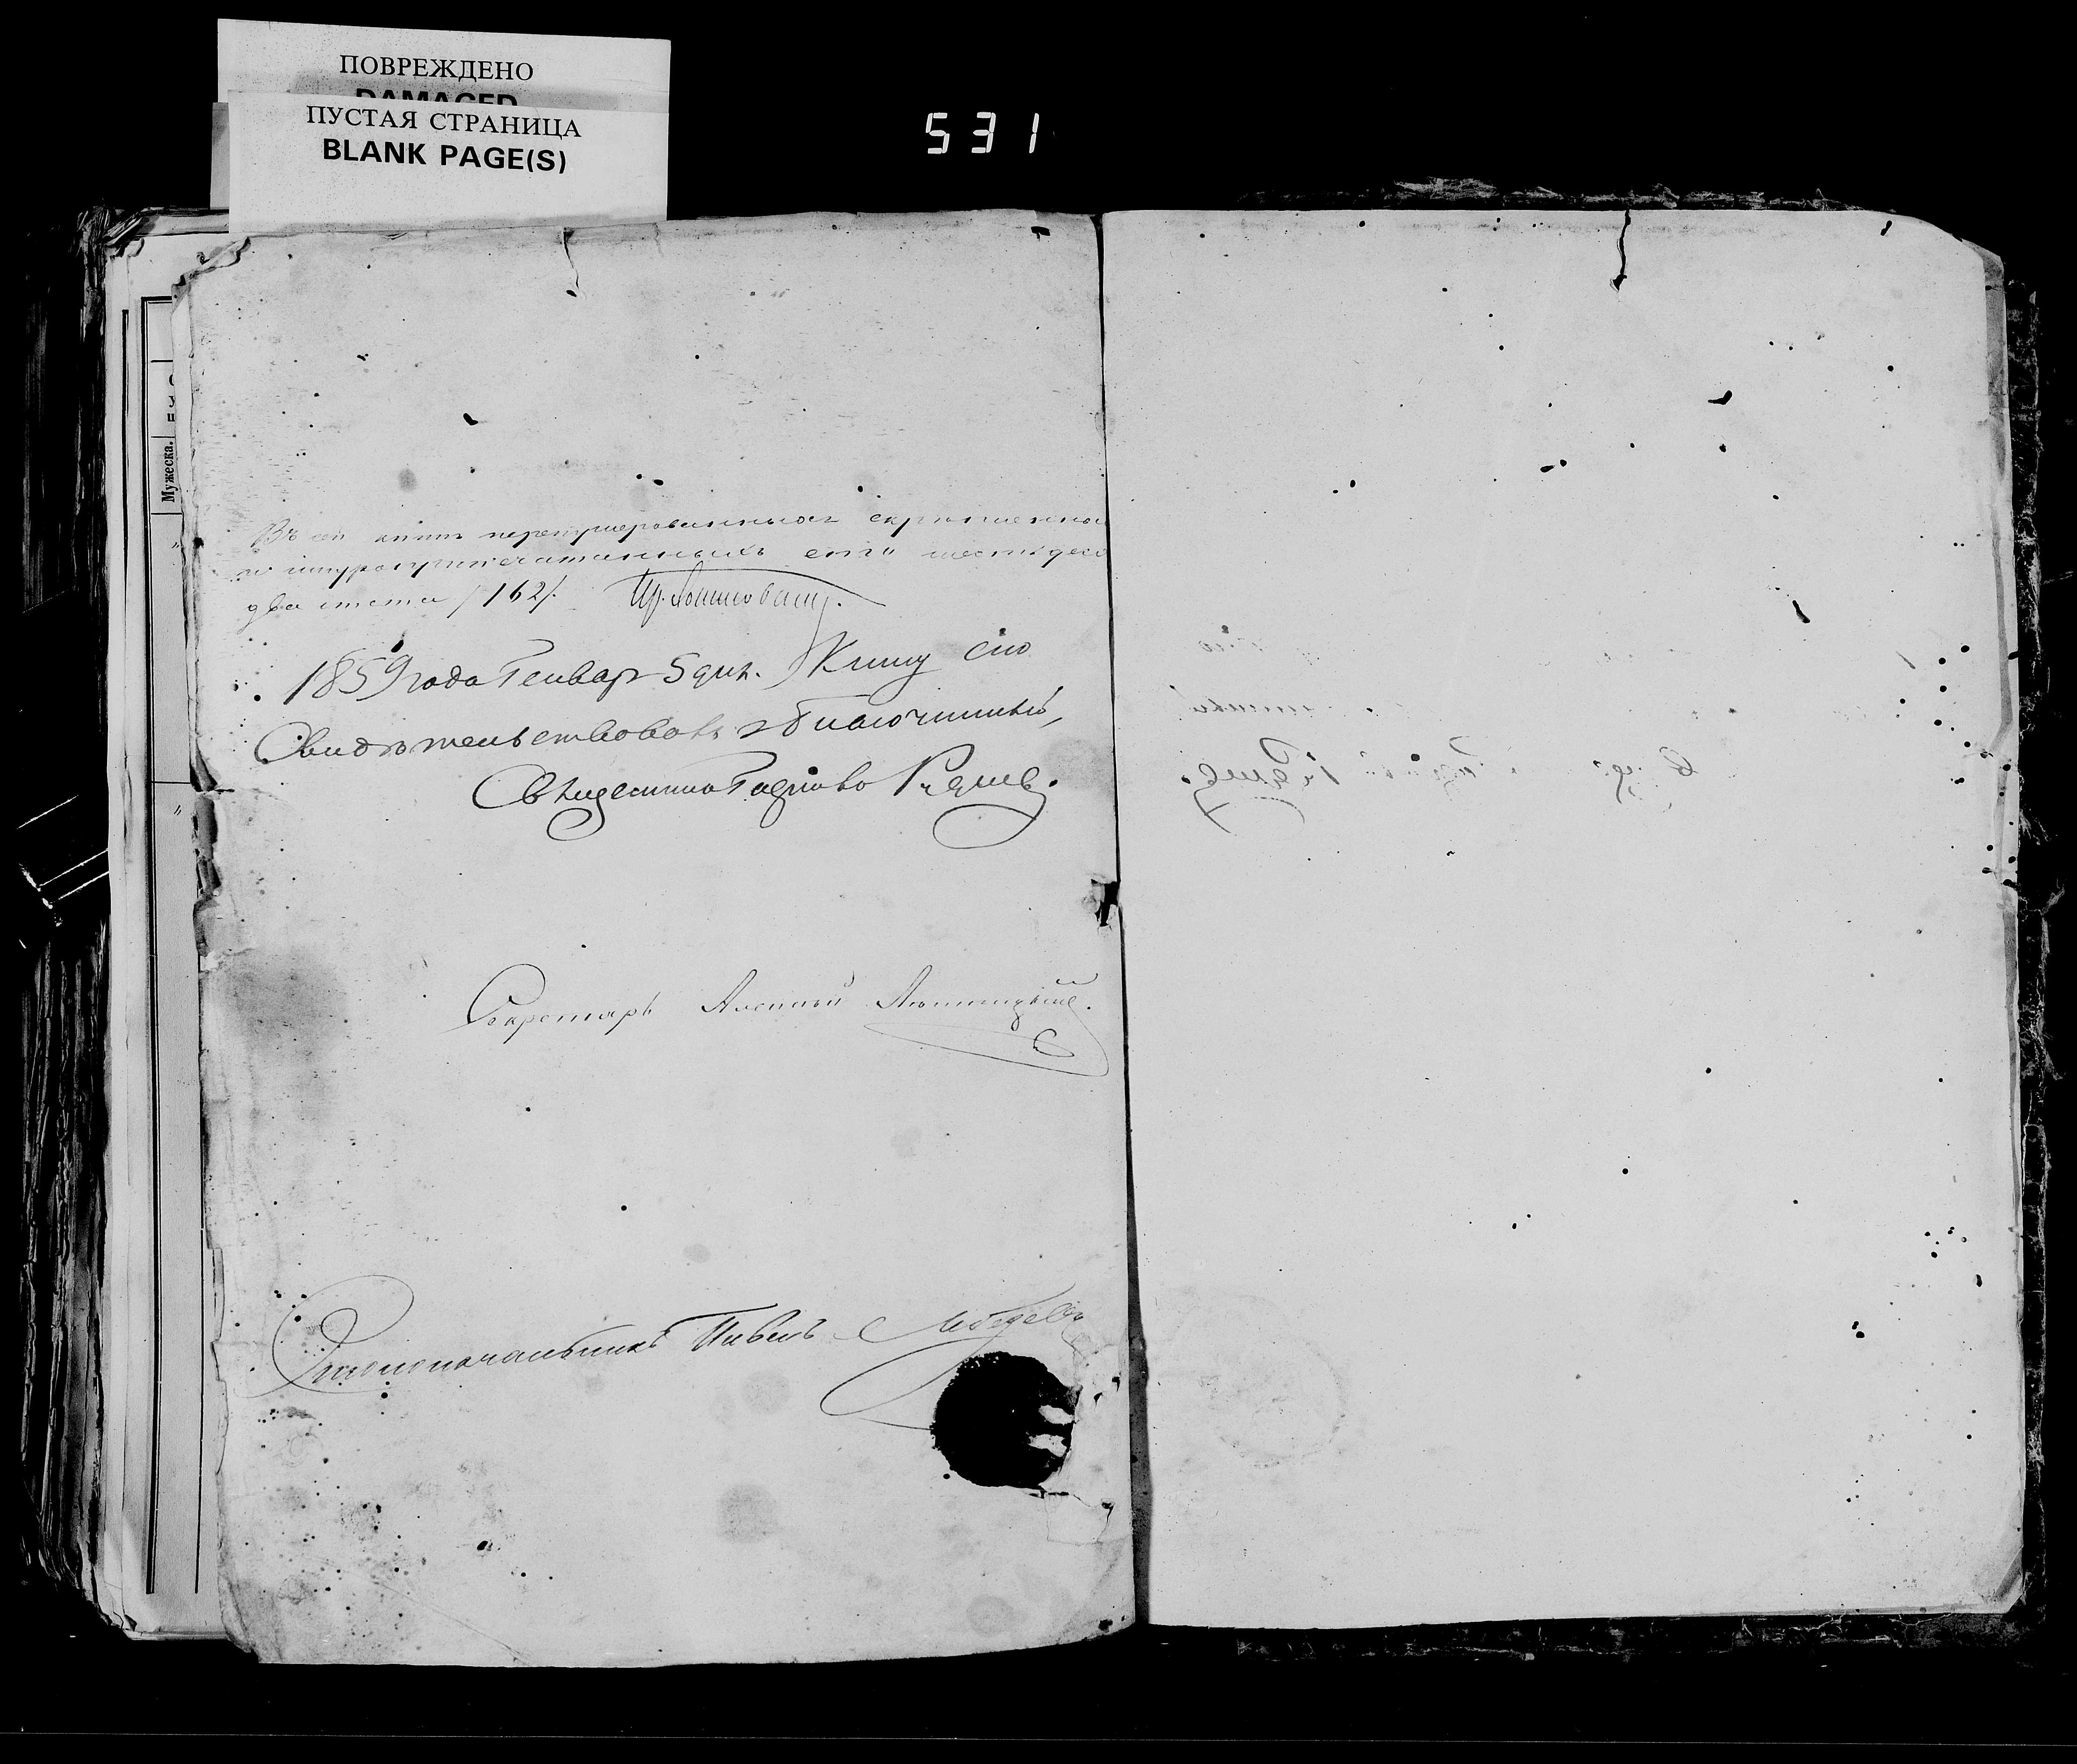 ПОВРЕЖДЕНО
DAMAGED
ПУСТАЯ СТРАНИЦА
BLANK PAGE(S)
531
Мужеска.
Въ сей книгѣ перенумерованныхъ скрѣпленныхъ
и шнуроприпечатанныхъ сто шестьдесятъ
два листа /162/.
1859 года Генваря 5 дня. Книгу сію
Свидѣтельствовалъ Благочинный,
Священникъ
Секретарь Люпницкій
Столоначальникъ Павелъ Лебедевъ